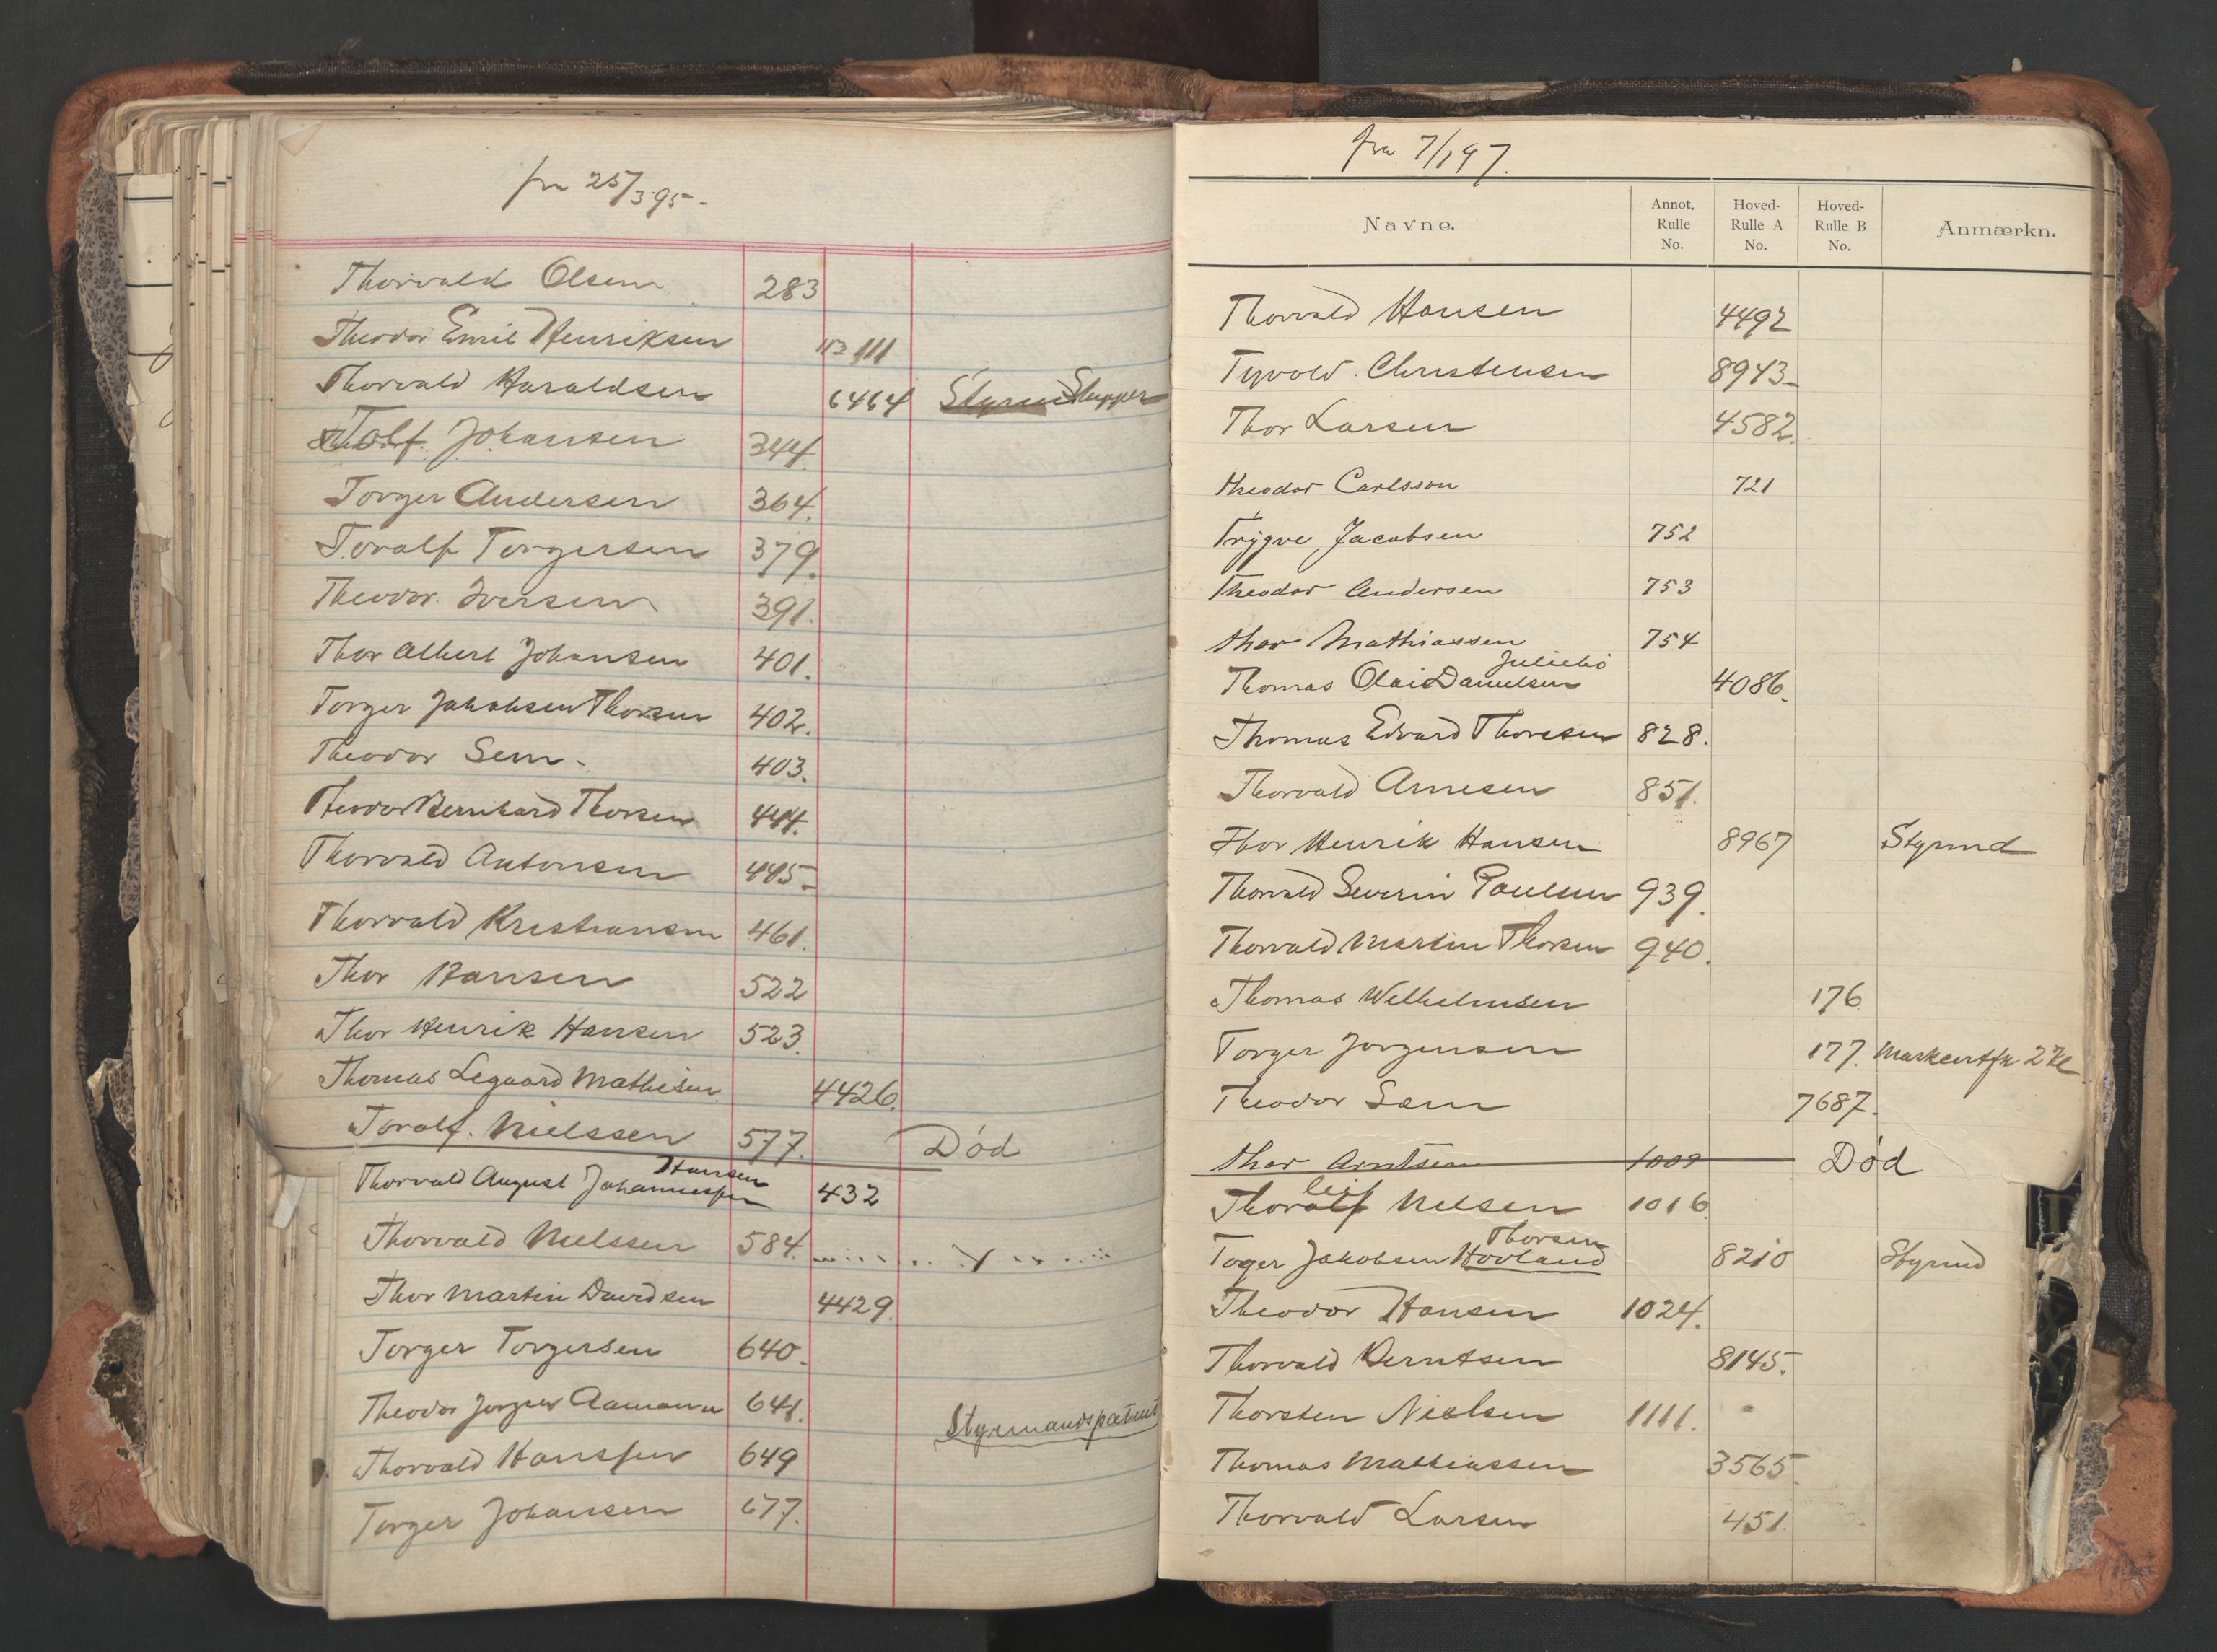 fra 25/3 95-
Thorvald Olsen 283
Theodor Emil Henriksen 113 111
Thorvald Haraldsen 6464 Skipper
Tolf Johansen 344.
Torger Andersen 364.
Toralf Torgersen 379.
Theodor Iversen 391.
Thor Albert Johansen 401.
Torger Jakobsen Thorsen 402.
Theodor Sem - 403.
Theodor Bernhard Thorsen 444.
Thorvald Antonsen 445-
Thorvald Kristiansen 461.
Thor Hansen 522
Thor Henrik Hansen 523.
Thomas Legaard Mathisen 4426.
Toralf. Nielssen 577. Död
Hansen
Thorvald August Johannessen 432
Thorvald Nielssen 584.
Thor Martin Davidsen 4429.
Torger Torgersen 640.
Theodor Jørgen Aamann 641. Styrmandspatent
Thorvald Hanssen 649
Torger Johansen 677.
fra 7/1 97.
Navne. Annot. Rulle No. Hoved-Rulle A No. Hoved-Rulle B No. Anmærkn.
Thorvald Hansen 4492
Tyvold Christensen 8943-
Thor Larsen 4582.
Theodor Carlsson 721
Trygve Jacobsen 752
Theodor Andersen 753
Thor Mathiassen 754
Juliebö
Thomas Olai Danielsen 4086.
Thomas Edvard Thoresen 828.
Thorvald Arnesen 851.
Thor Henrik Hansen 8967 Styrmd
Thorvald Severin Paulsen 939.
Thorvald Martin Thorsen 940.
Thomas Wilhelmsen 176
Torger Jorgensen 177.
Theodor Sem 7687.
Thor Arntsen 1009 Död
leif
Thoralf Nilsen 1016
Thorsen
Toger Jakobsen Hovland 8210 Styrmd
Theodor Hansen 1024.
Thorvald Berntsen 8145.
Thorsten Nielsen 1111.
Thomas Mathiassen 3565
Thorvald Larsen 451.